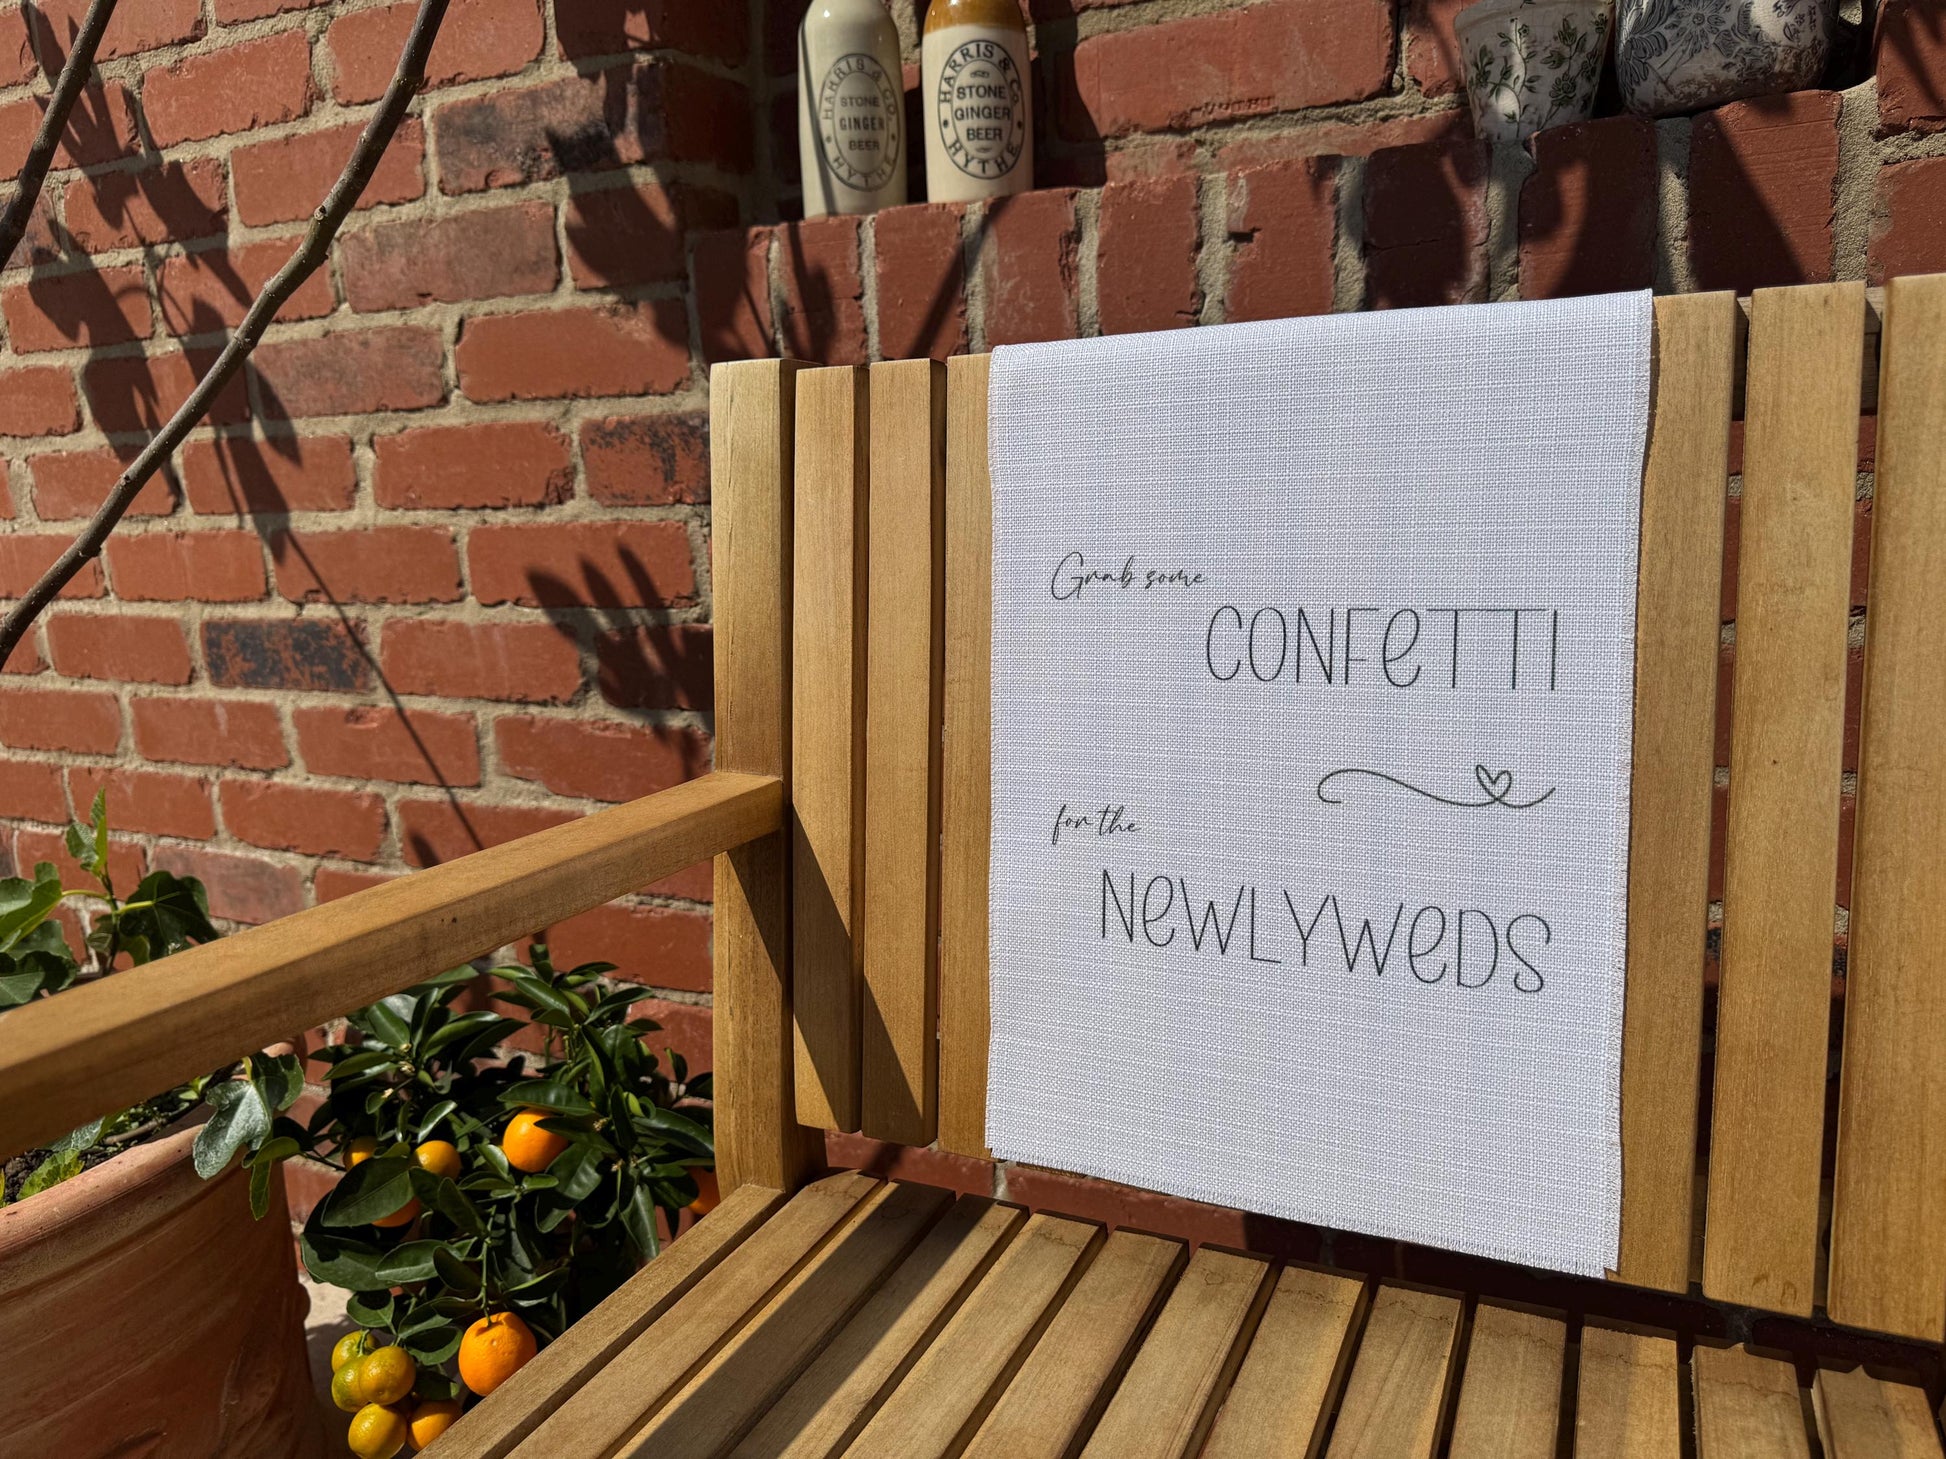 HARRIS & Co.
STONE
GINGER
BEER
HYTHE
HARRIS & Co.
STONE
GINGER
BEER
HYTHE
Grab some
CONFeTTI
for the
NeWLYWeDS